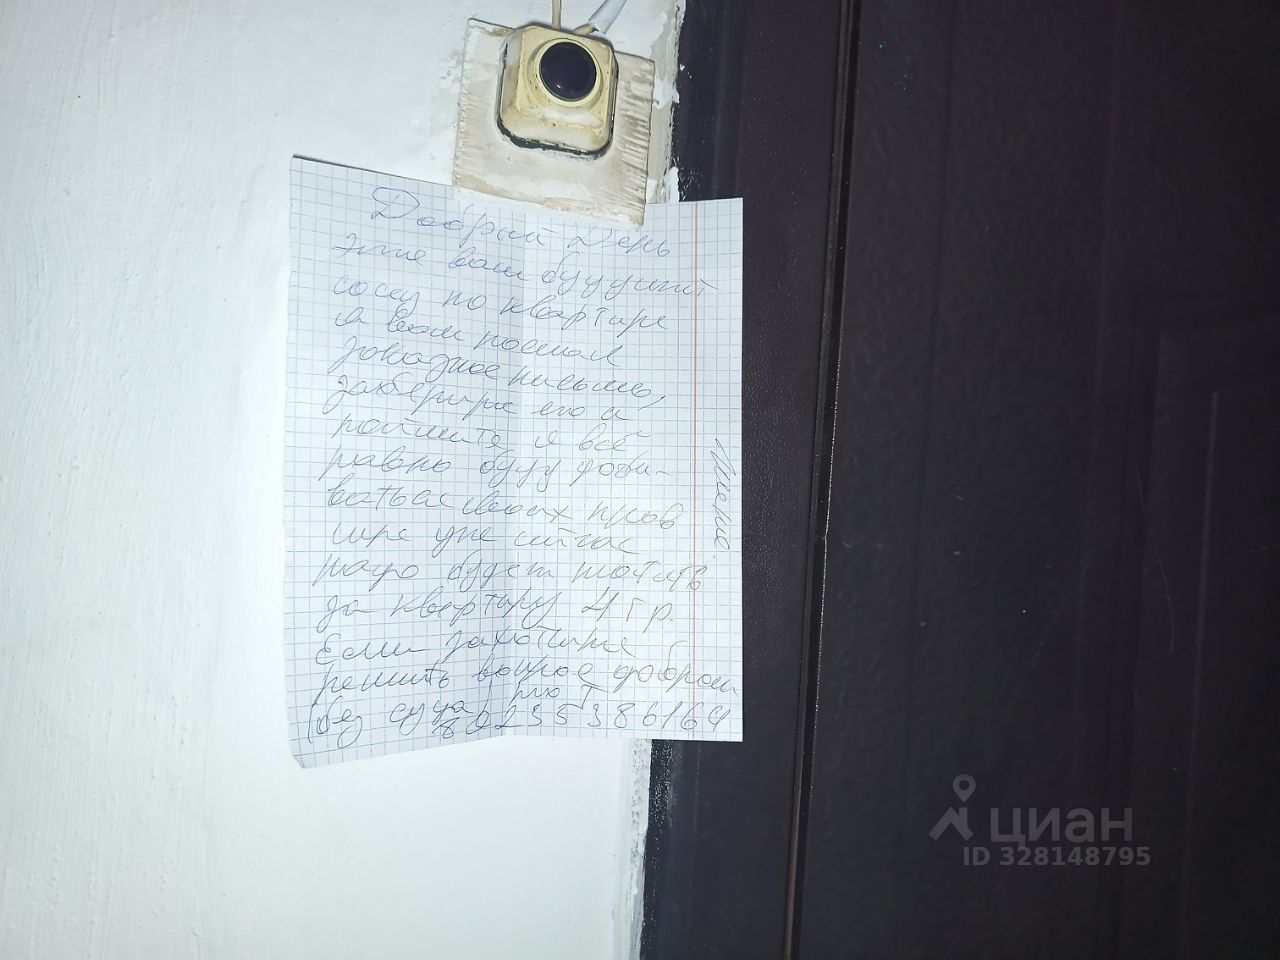 Добрый День
это ваш будущий
сосед по квартире
я вам послал
заказное письмо,
заберите его и
поймите я всё
равно буду доби-
ваться своих прав
уже сейчас
надо будет платить
за квартиру 4 т р.
Если захотите
решить вопрос добром
без суда
циан
ID 328148795